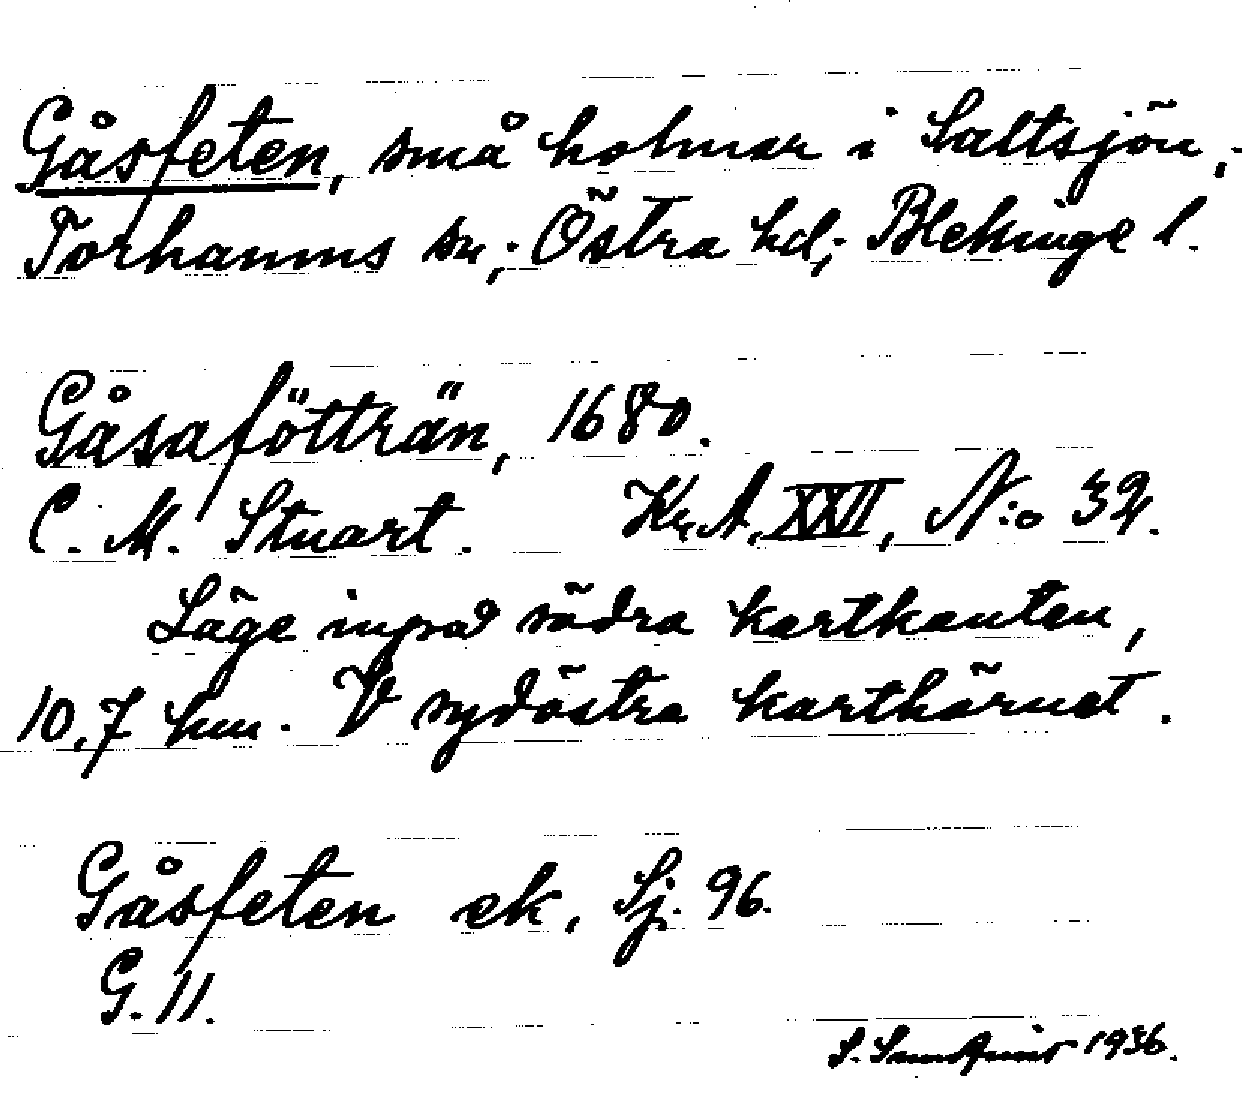 Gåsfeten, små holmar i Saltsjön,
Torhamns sn; Östra hd; Blekinge l.
Gåsafötträn, 1680.
C. M. Stuart. Kr. A. XXII, N:o 32.
Läge invid södra kartkanten,
10,7 km. V sydöstra karthörnet.
Gåsfeten ek. Sj. 96.
G. 11.
S. 1936.